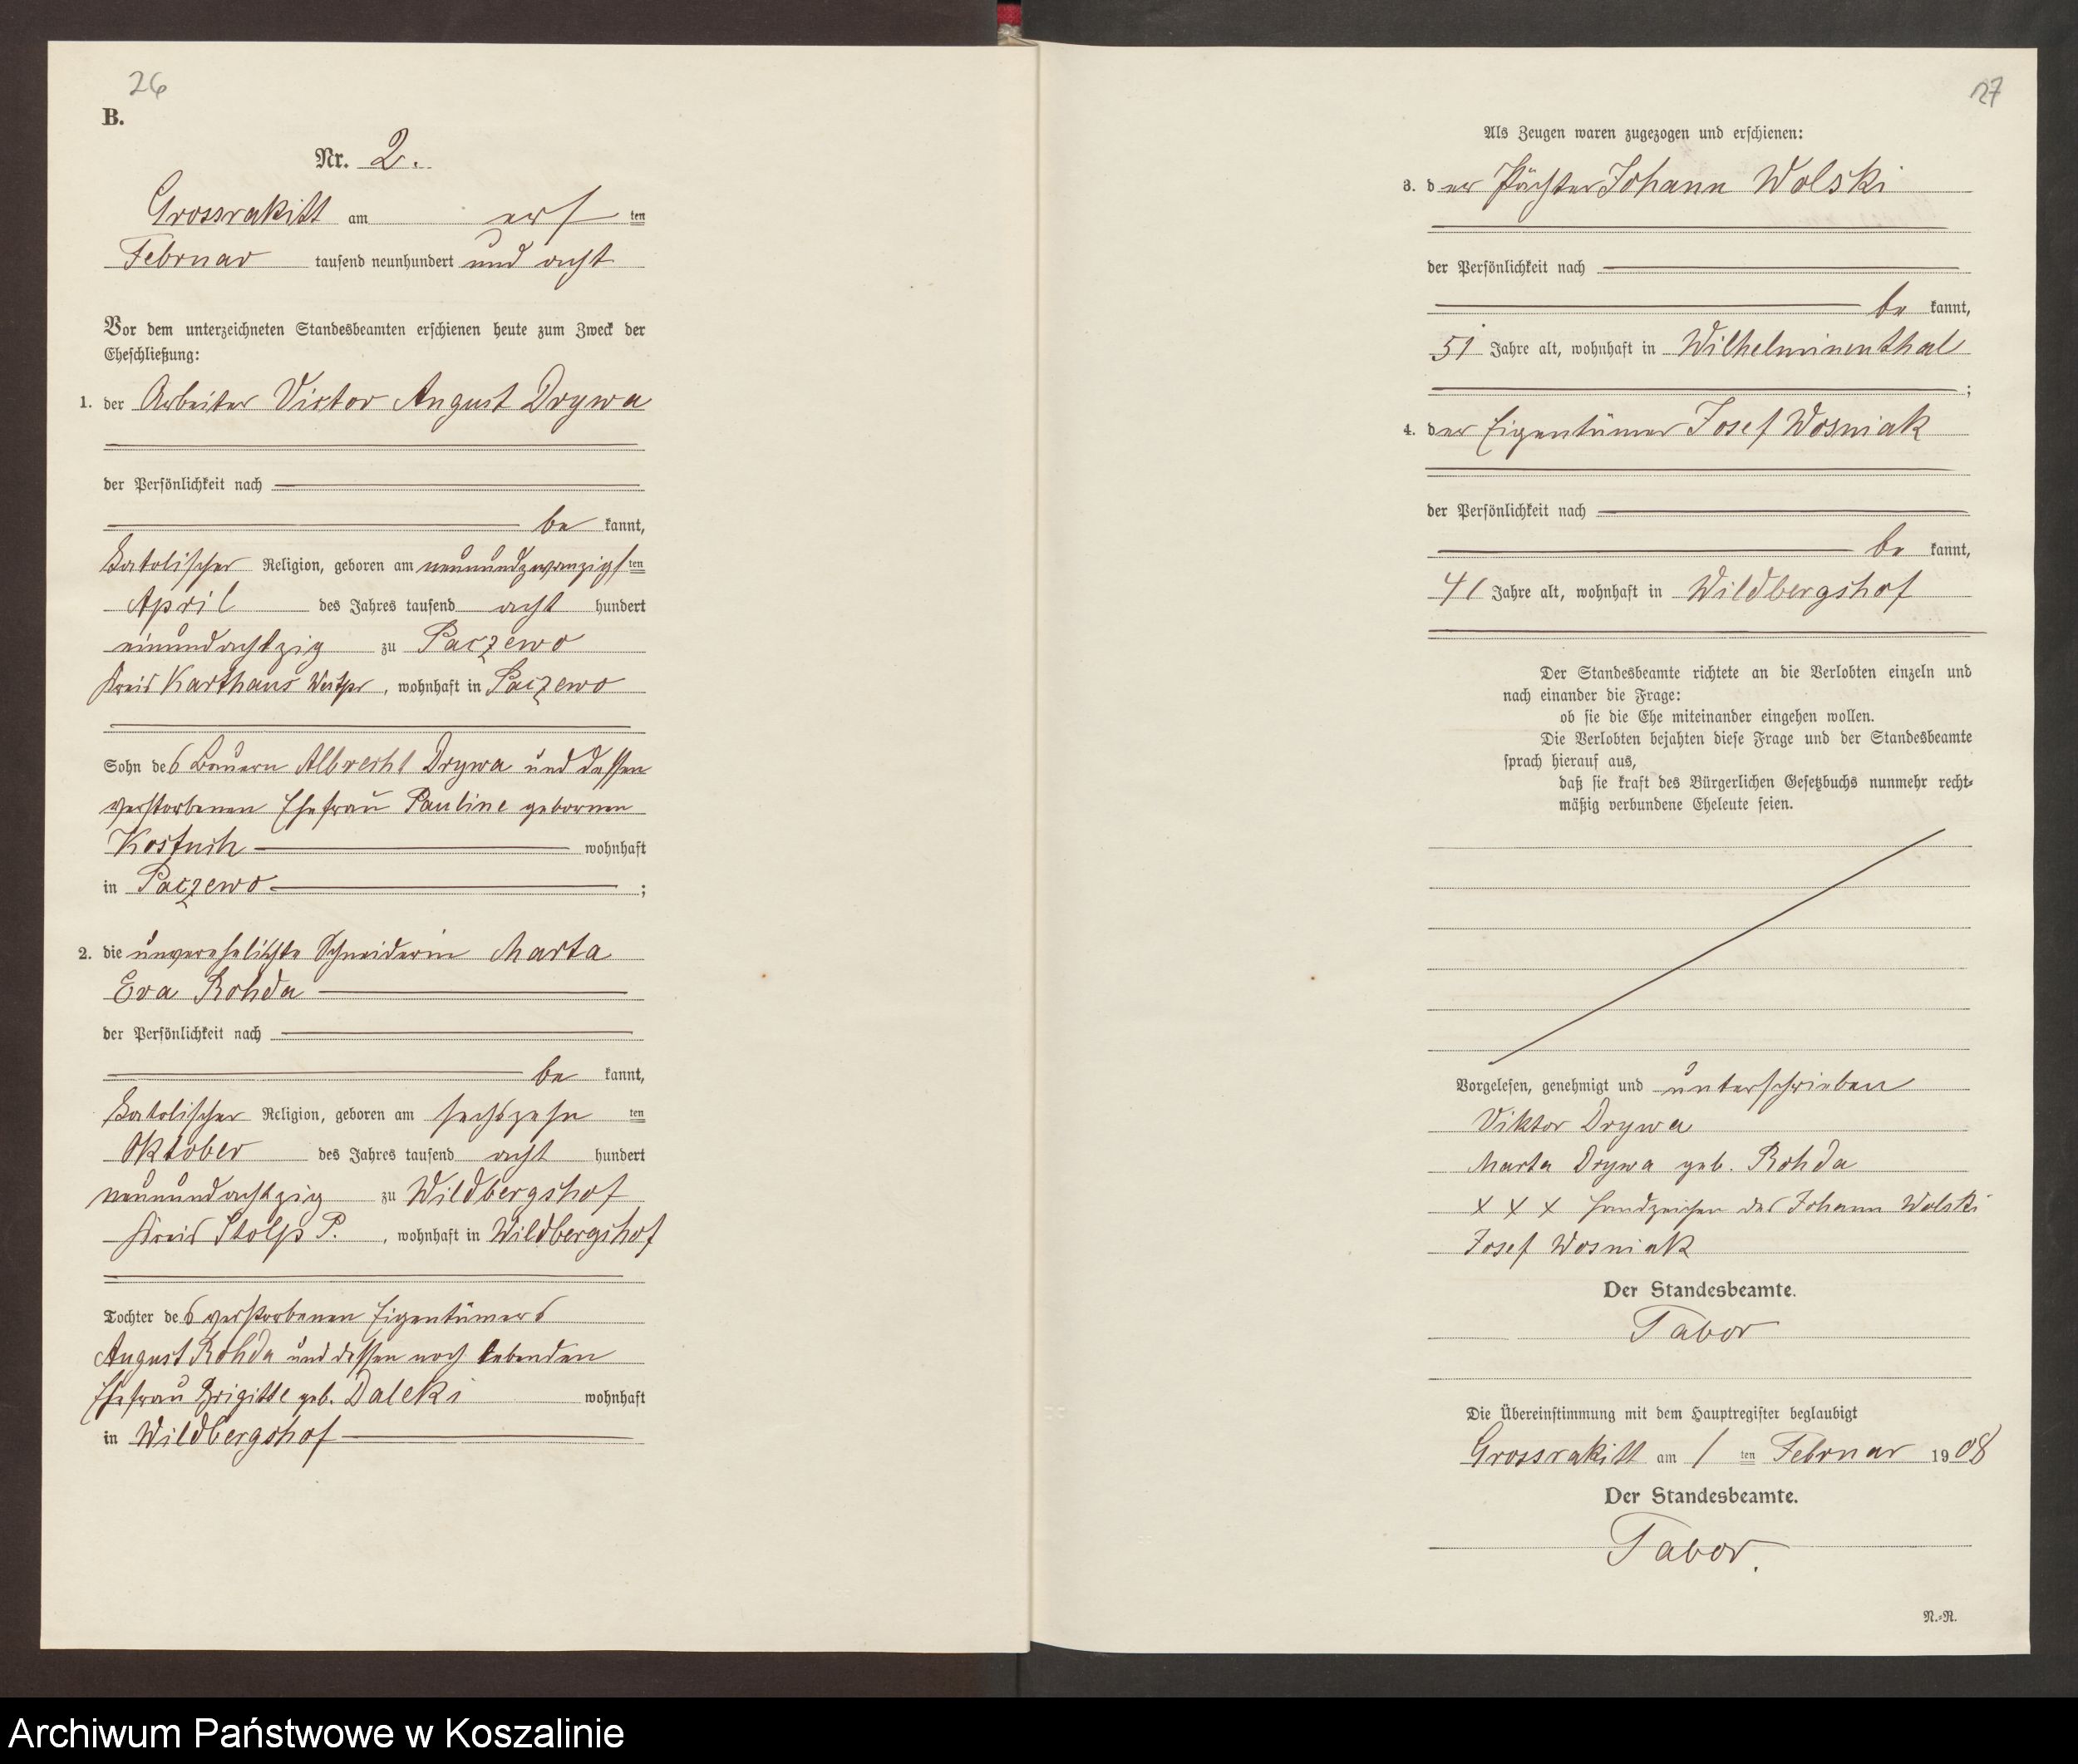 26
B.
Nr. 2.
Grossrakitt am ersten
Februar tausend neunhundert und acht
Vor dem unterzeichneten Standesbeamten erschienen heute zum Zweck der
Eheschließung:
1. der Arbeiter Victor August Drywa
der Persönlichkeit nach
be kannt,
katolischer Religion, geboren am neunundzwanzigsten
April des Jahres tausend acht hundert
einundachtzig zu Paczewo
Kreis Karthaus Westpr, wohnhaft in Paczewo
Sohn des Bauern Albrecht Drywa und dessen
verstorbenen Ehefrau Pauline gebornen
Kostuch wohnhaft
in Paczewo ;
2. die unverehelichte Schneiderin Marta
Eva Rohda
der Persönlichkeit nach
be kannt,
katolischer Religion, geboren am sechszehn ten
Oktober des Jahres tausend acht hundert
neunundachtzig zu Wildbergshof
Kreis Stolp P. , wohnhaft in Wildbergshof
Tochter des verstorbenen Eigentümers
August Rohda und dessen noch lebenden
Ehefrau Brigitte geb. Daleki wohnhaft
in Wildbergshof
27
Als Zeugen waren zugezogen und erschienen:
3. der Pächter Johann Wolski
der Persönlichkeit nach
be kannt,
51 Jahre alt, wohnhaft in Wilhelminenthal
;
4. der Eigentümer Josef Wosniak
der Persönlichkeit nach
be kannt,
41 Jahre alt, wohnhaft in Wildbergshof
Der Standesbeamte richtete an die Verlobten einzeln und
nach einander die Frage:
ob sie die Ehe miteinander eingehen wollen.
Die Verlobten bejahten diese Frage und der Standesbeamte
sprach hierauf aus,
daß sie kraft des Bürgerlichen Gesetzbuchs nunmehr recht-
mäßig verbundene Eheleute seien.
Vorgelesen, genehmigt und unterschrieben
Viktor Drywa
Marta Drywa geb. Rohda
x x x Handzeichen des Johann Wolski
Josef Wosniak
Der Standesbeamte.
Tabor
Die Übereinstimmung mit dem Hauptregister beglaubigt
Grossrakitt am 1 ten Februar 1908
Der Standesbeamte.
Tabor.
N.-R.
Archiwum Państwowe w Koszalinie